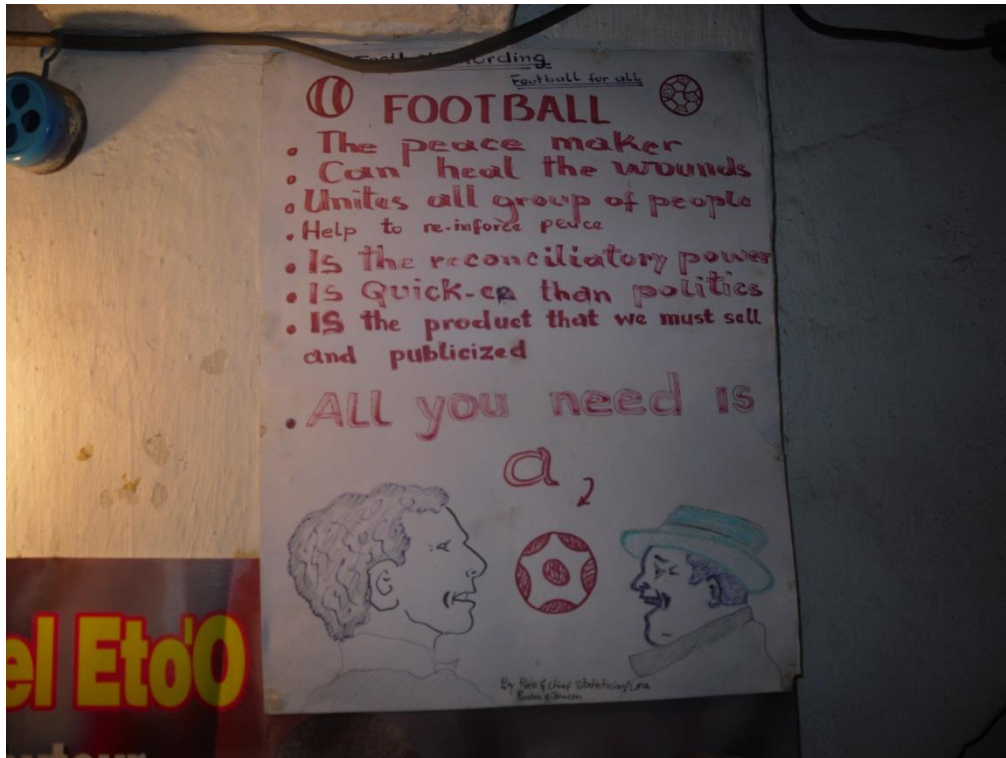 Football for all
FOOTBALL
• The peace maker
• Can heal the wounds
• Unites all group of people
• Help to re-inforce peace
• Is the reconciliatory power
• Is Quick-er than politics
• IS the product that we must sell
and publicized
• All you need is
a
By
el Eto'O